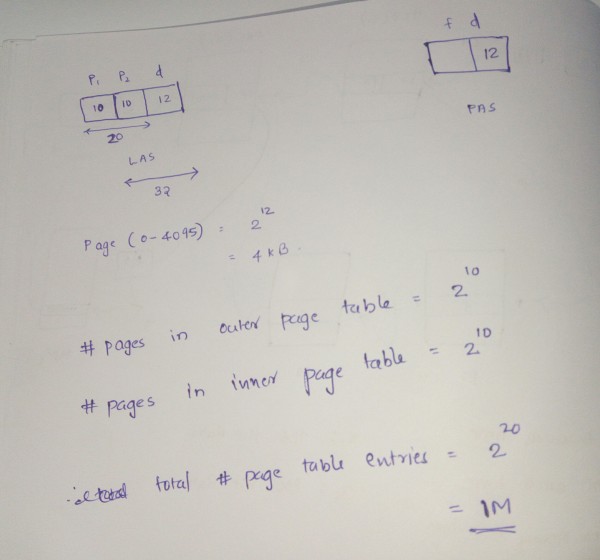 f d
12
PAS
P1 P2 d
10 10 12
20
LAS
32
Page (0-4095) = 2^12
= 4 KB.
# pages in outer page table = 2^10
# pages in inner page table = 2^10
total # page table entries = 2^20
= 1M